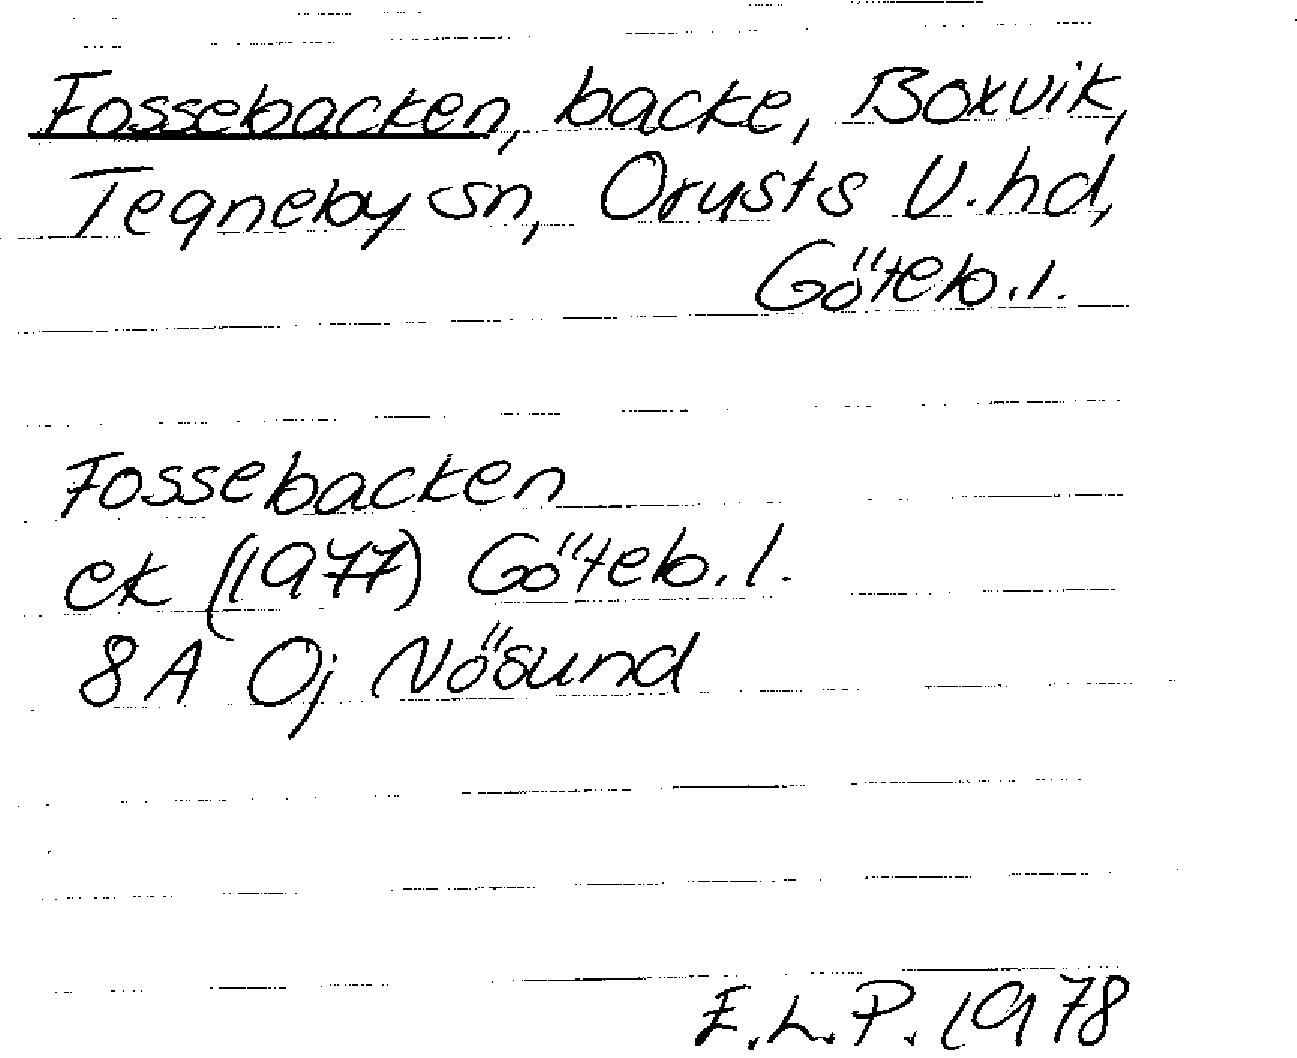 Fossebacken, backe, Boxvik,
Tegneby sn, Orusts V. hd,
Göteb. l.
Fossebacken
ek (1977) Göteb. l.
8A Oj Nösund
E.L.P. 1978